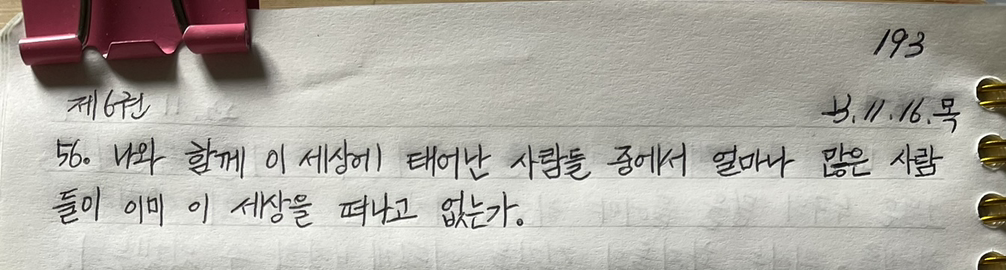 193
제6권
11.16.목
56. 나와 함께 이 세상에 태어난 사람들 중에서 얼마나 많은 사람
들이 이미 이 세상을 떠나고 없는가.